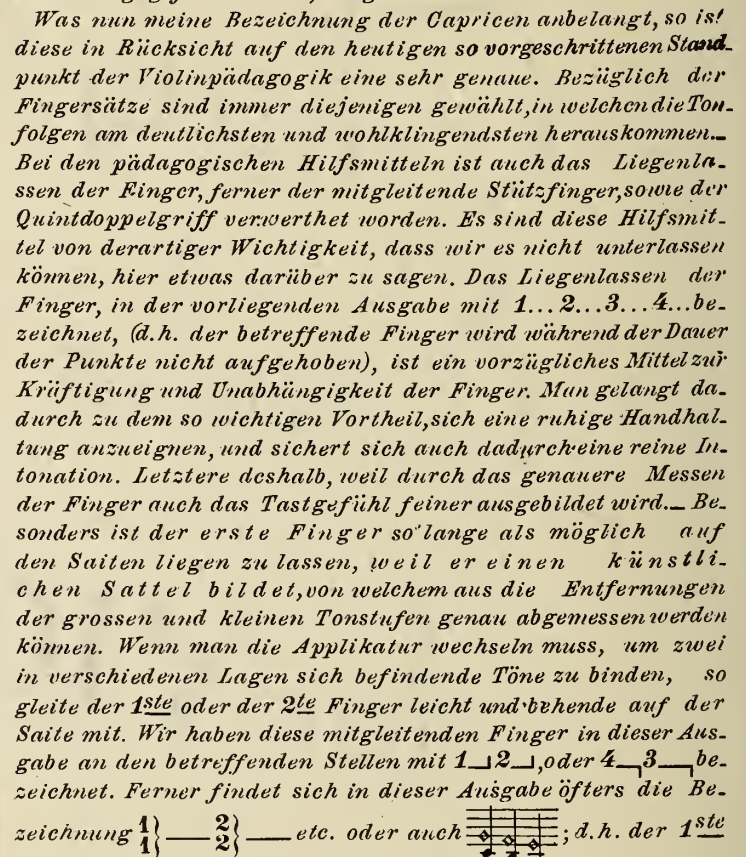 Was nun meine Bezeichnung der Capricen anbelangt, so ist
diese in Rücksicht auf den heutigen so vorgeschrittenen Stand-
punkt der Violinpädagogik eine sehr genaue. Bezüglich der
Fingersätze sind immer diejenigen gewählt, in welchen die Ton-
folgen am deutlichsten und wohlklingendsten herauskommen.—
Bei den pädagogischen Hilfsmitteln ist auch das Liegenla-
ssen der Finger, ferner der mitgleitende Stützfinger, sowie der
Quintdoppelgriff verwerthet worden. Es sind diese Hilfsmit-
tel von derartiger Wichtigkeit, dass wir es nicht unterlassen
können, hier etwas darüber zu sagen. Das Liegenlassen der
Finger, in der vorliegenden Ausgabe mit 1...2...3...4...be-
zeichnet, (d.h. der betreffende Finger wird während der Dauer
der Punkte nicht aufgehoben), ist ein vorzügliches Mittel zur
Kräftigung und Unabhängigkeit der Finger. Man gelangt da-
durch zu dem so wichtigen Vortheil, sich eine ruhige Handhal-
tung anzueignen, und sichert sich auch dadurch eine reine In-
tonation. Letztere deshalb, weil durch das genauere Messen
der Finger auch das Tastgefühl feiner ausgebildet wird.— Be-
sonders ist der erste Finger so lange als möglich auf
den Saiten liegen zu lassen, weil er einen künstli-
chen Sattel bildet, von welchem aus die Entfernungen
der grossen und kleinen Tonstufen genau abgemessen werden
können. Wenn man die Applikatur wechseln muss, um zwei
in verschiedenen Lagen sich befindende Töne zu binden, so
gleite der 1ste oder der 2te Finger leicht und behende auf der
Saite mit. Wir haben diese mitgleitenden Finger in dieser Aus-
gabe an den betreffenden Stellen mit 1_⏌2_⏌, oder 4_┐3_┐be-
zeichnet. Ferner findet sich in dieser Ausgabe öfters die Be-
zeichnung 1 1}— 2 2}— etc. oder auch ; d.h. der 1ste